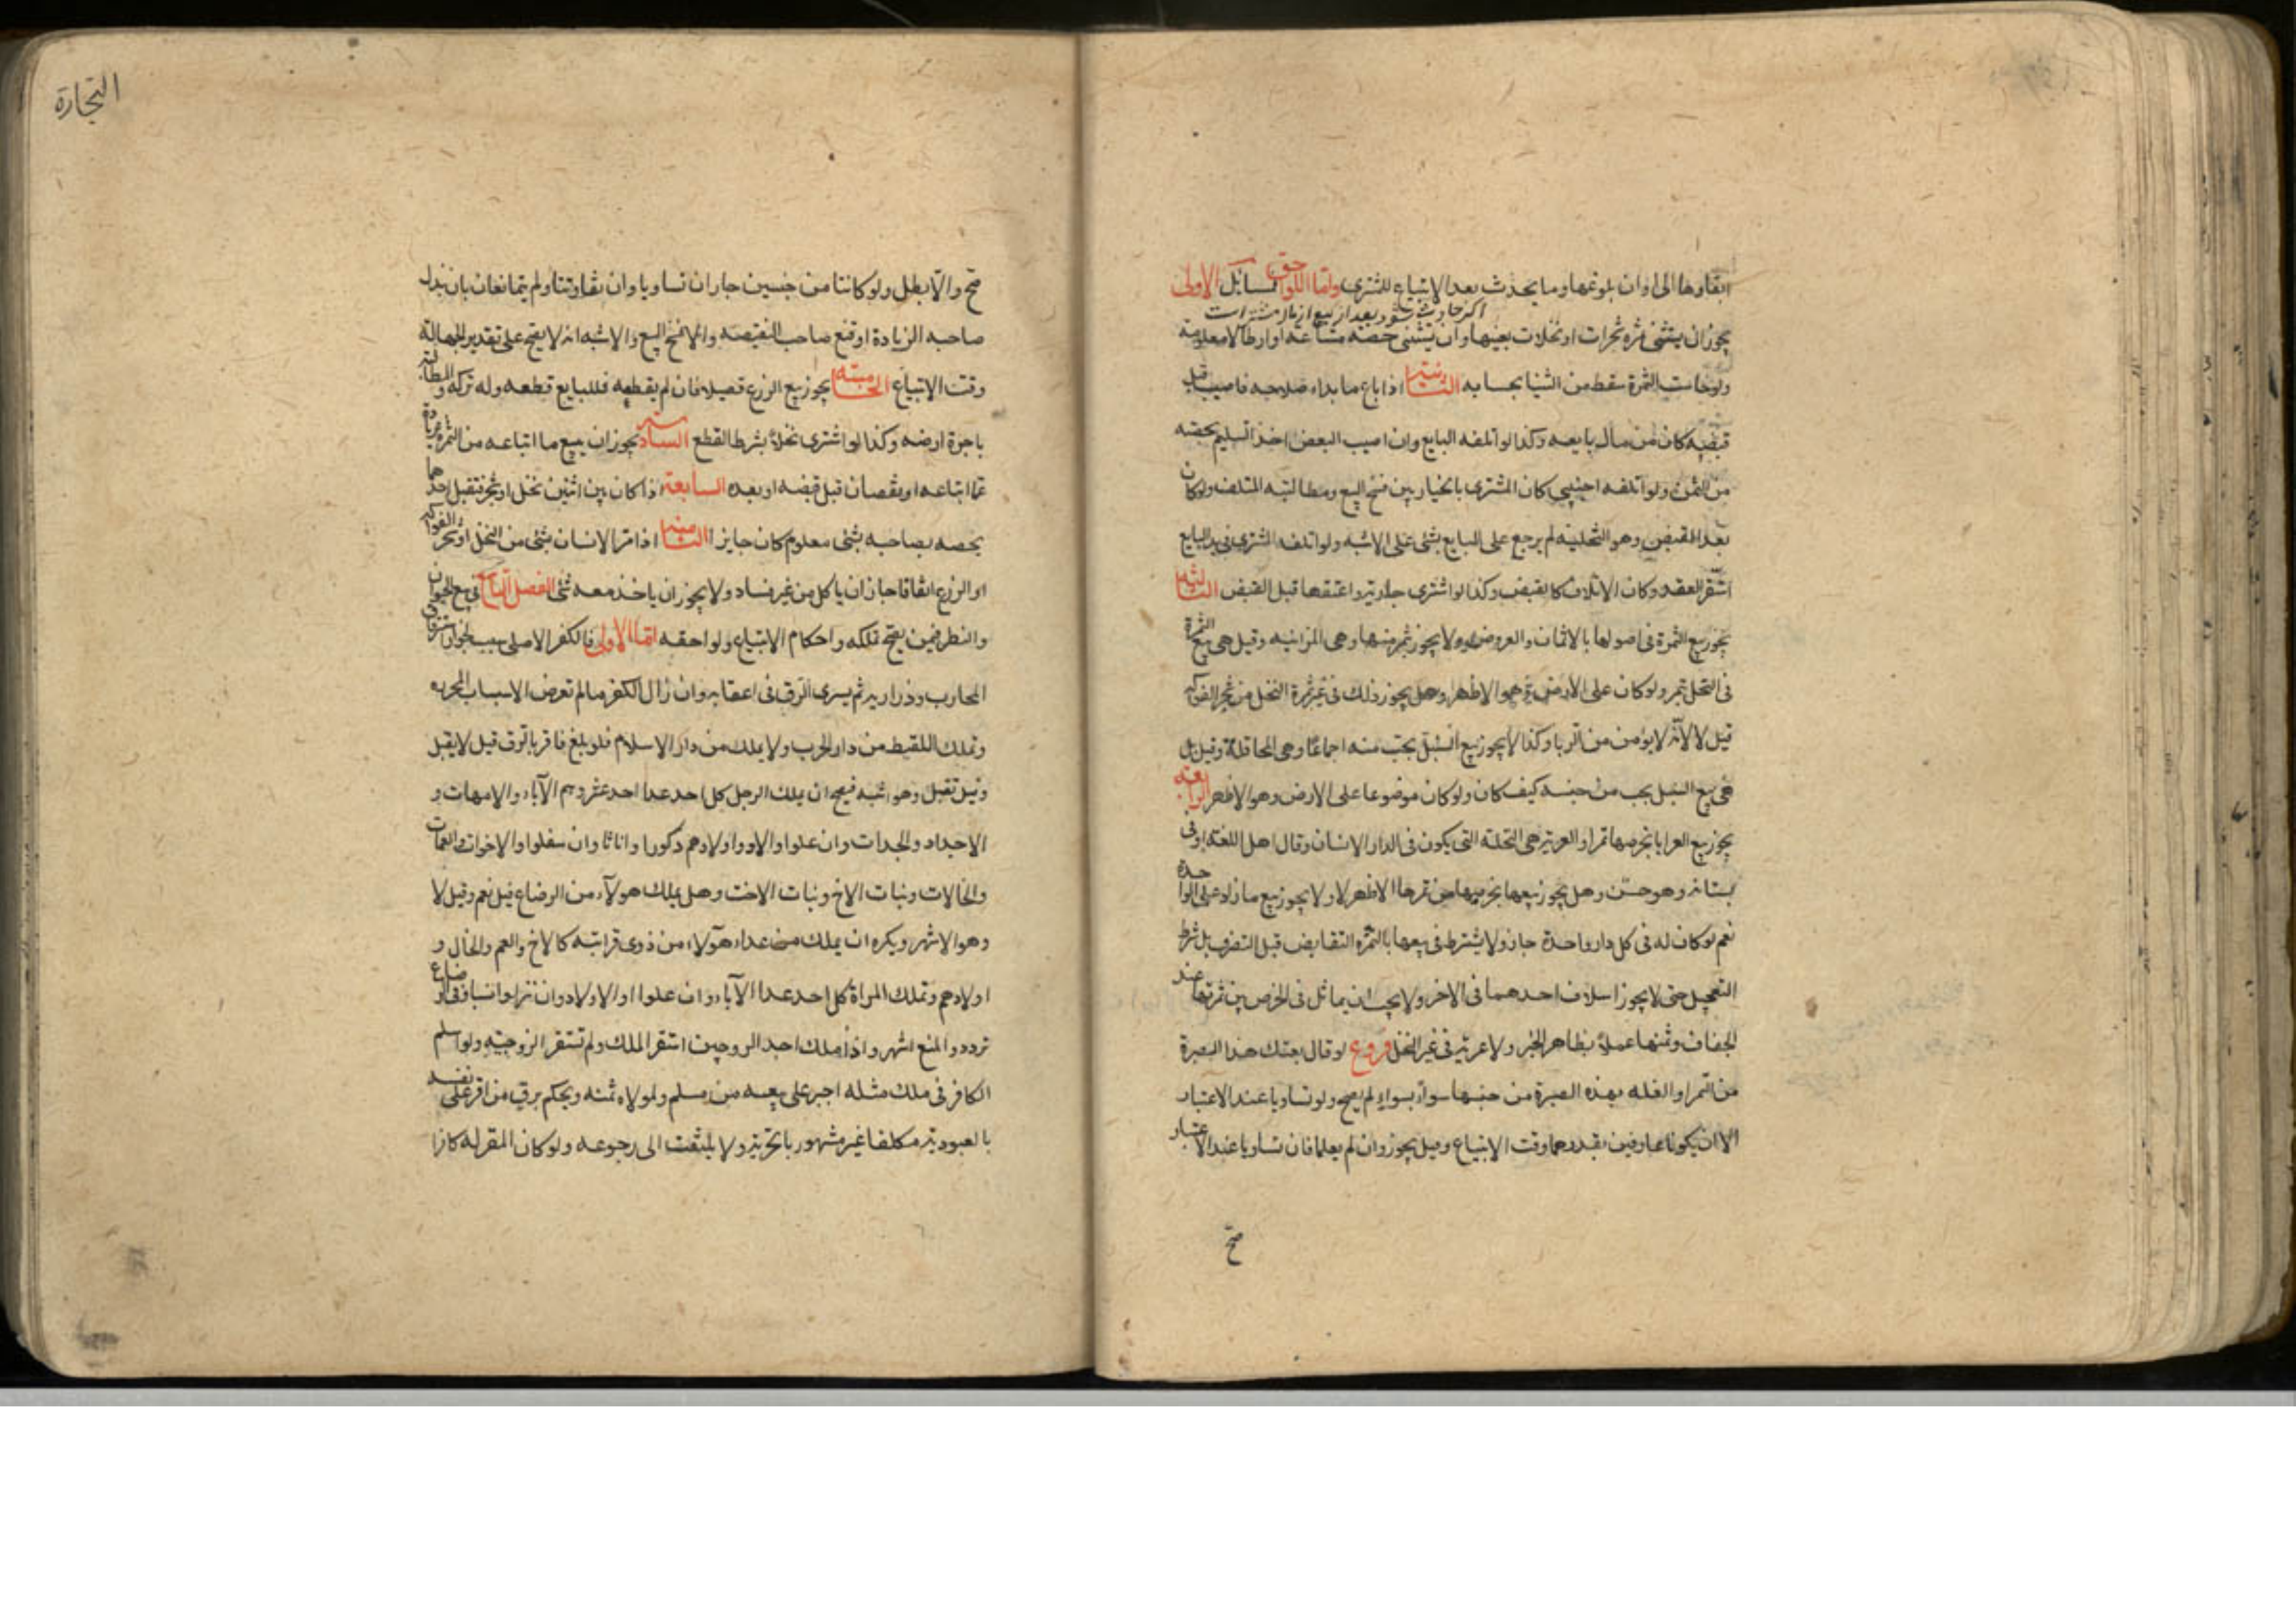 ابقاوها الى اوان بلوغها وما يحدث بعد الابتياع للمشترى واما اللواحق فمسائل الاولى
اكر حادث شود بعد از بيع از مال مشترى است
يجوز ان يستثنى ثمرة شجرات او نخلات بعينها وان يستثنى حصة مشاعة او ارطالا معلومة
ولو خاست الثمرة سقط من الثنيا بحسابه الثانية اذا باع ما بدا صلاحه فاصيب قبل
قبضه كان من مال بايعه وكذا لو اتلفه البايع وان اصيب البعض اخذ السليم بحصته
من الثمن ولو اتلفه اجنبى كان المشترى بالخيار بين فسخ البيع ومطالبة المتلف ولو كان
بعد القبض وهو التخلية لم يرجع على البايع بشئ على الاشبه ولو اتلفه المشترى فى يد البايع
استقر العقد وكان الاتلاف كالقبض وكذا لو اشترى جارية واعتقها قبل القبض الثالثة
يجوز بيع الثمرة فى اصولها بالاثمان والعروض ولا يجوز بثمر منها وهى المزابنة وقيل هى بيع الثمرة
فى النخل بتمر ولو كان على الارض وهو الاظهر وهل يجوز ذلك فى غير ثمرة النخل من شجر الفواكه
قيل لا لانه لا يومن من الربا وكذا لا يجوز بيع السنبل بحب منه اجماعا وهى المحاقلة وقيل بل
هى بيع السنبل بحب من جنسه كيف كان ولو كان موضوعا على الارض وهو الاظهر الرابعة
يجوز بيع العرايا بخرصها تمرا والعرية هى النخلة التى يكون فى الدار الانسان وقال اهل اللغة او فى
بستانه وهو حسن وهل يجوز بيعها بخرصها من تمرها الاظهر لا ولا يجوز بيع ما زاد على الواحدة
نعم لو كان له فى كل دار واحدة جاز ولا يشترط فى بيعها بالثمرة التقابض قبل التفرق بل شرط
التعجيل حتى لا يجوز اسلاف احدهما فى الاخر ولا يجب ان يماثل فى الخرص بين ثمرتها عند
الجفاف وثمنها عملا بظاهر الخبر ولا عرية فى غير النخل فروع لو قال بعتك هذا الصبرة
من التمر او الغلة بهذه الصبرة من جنسها سوآء بسواء لم يصح ولو تساويا عند الاعتبار
الا ان يكونا عارفين بقدرهما وقت الابتياع وقيل يجوز وان لم يعلما فان تساويا عند الاعتبار
صح
التجارة
صح والا بطل ولو كانتا من جنسين جاز ان تساويا وان تفاوتتا ولم يتمانعان بان بذل
صاحبه الزيادة او قنع صاحب النقيصة والا فسخ البيع والاشبه انه لا يصح على تقدير الجهالة
وقت الابتياع الخامسة يجوز بيع الزرع قصيلا فان لم يقطعه فللبايع قطعه وله تركه والمطالبة
باجرة ارضه وكذا لو اشترى نخلا بشرط القطع السادسة يجوز ان يبيع ما ابتاعه من الثمرة بزيادة
عما ابتاعه او نقصان قبل قبضه او بعده السابعة اذا كان بين اثنين نخل او شجر فتقبل احدهما
بحصه بصاحبه بشئ معلوم كان جايزا الثامنة اذا مر الانسان بشئ من النخل او شجر الفواكه
او الزرع اتفاقا جاز ان ياكل من غير فساد ولا يجوز ان ياخذ معه شئ الفصل التاسع فى بيع الحيوان
والنظر فيمن يصح تملكه واحكام الابتياع ولواحقه اما الاولى فالكفر الاصلى سبب لجواز استرقاق
المحارب وذراريه ثم يسرى الرق فى اعقابه وان زال الكفر ما لم تعرض الاسباب المحررة
وتملك اللقيط من دار الحرب ولا يملك من دار الاسلام فلو بلغ فاقر بالرق قيل لا يقبل
وقيل تقبل وهو اشبه فيصح ان يملك الرجل كل احد عدا احد عشر وهم الآباء والامهات و
الاجداد والجدات وان علوا والاولاد واولادهم ذكورا واناثا وان سفلوا والاخوات والعمات
والخالات وبنات الاخ وبنات الاخت وهل يملك هولآء من الرضاع قيل نعم وقيل لا
وهو الاشهر ويكره ان يملك من عدا هولاء من ذوى قرابته كالاخ والعم والخال و
اولادهم وتملك المراة كل احد عدا الآباء وان علوا والاولاد وان نزلوا نسبا وفى الرضاع
تردد والمنع اشهر واذا ملك احد الزوجين استقر الملك ولم تستقر الزوجية ولو اسلم
الكافر فى ملك مثله اجبر على بيعه من مسلم ولمولاه ثمنه ويحكم برق من اقر على نفسه
بالعبودية مكلفا غير مشهور بالحرية ولا يلتفت الى رجوعه ولو كان المقر له كافرا